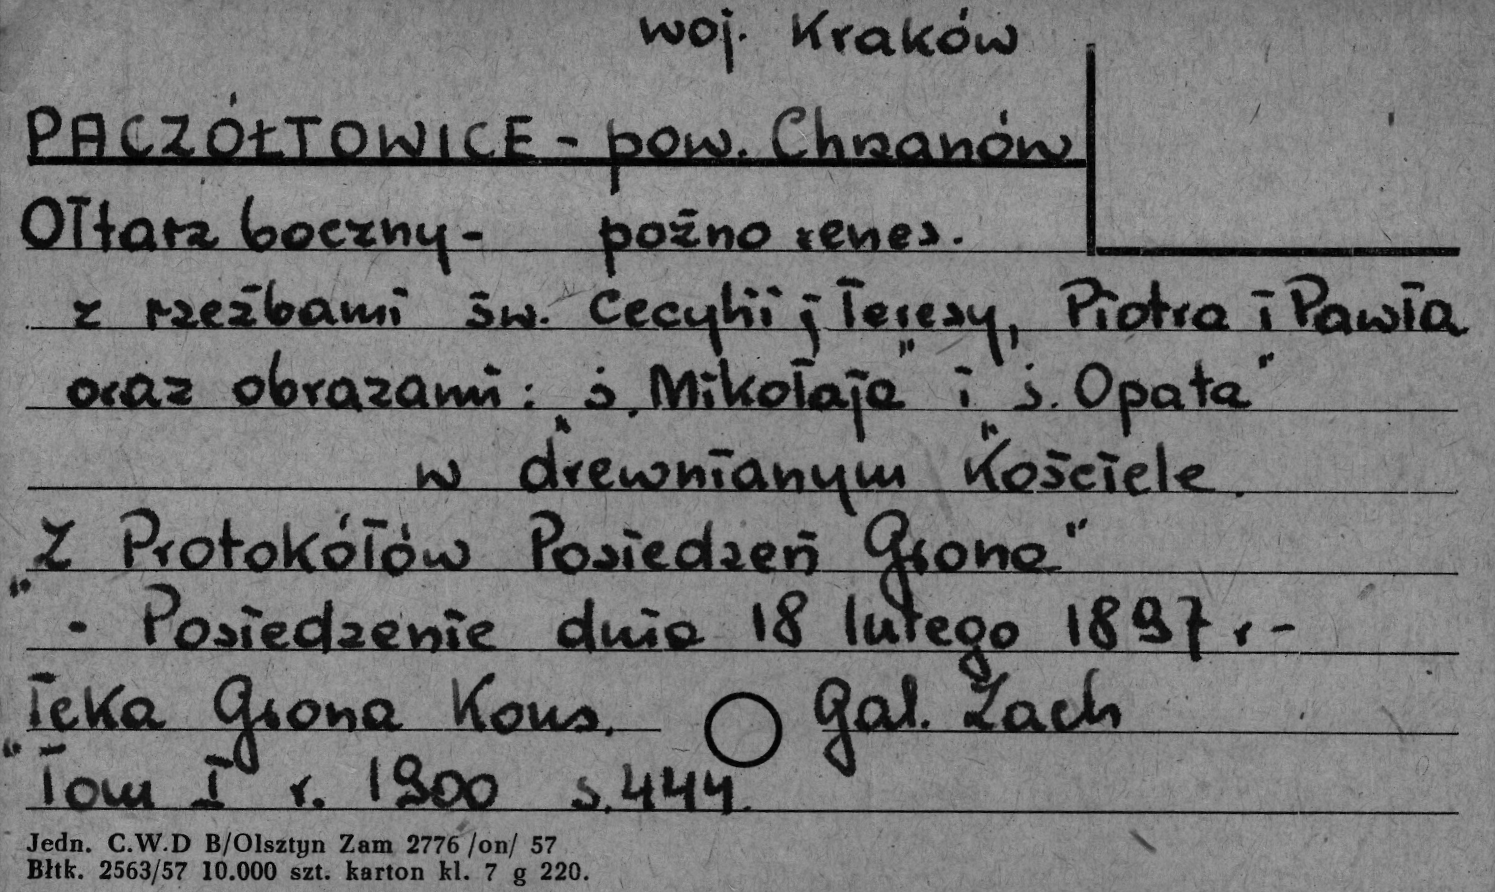 woj. Kraków
PACZÓŁTOWICE - pow. Chrzanów
Ołtarz boczny - poźno renes.
z rzeźbami św. Cecylii j Teresy, Piotra i Pawła
oraz obrazami: „ś. Mikołaja" i „ś. Opata"
w drewnianym Kościele.
„Z Protokółów Posiedzeń Grona"
- Posiedzenie dnia 18 lutego 1897 r -
„Teka Grona Kons. Gal. Zach
Tom I r. 1900 s. 444.
Jedn. C.W.D B/Olsztyn Zam 2776 /on/ 57
Błtk. 2563/57 10.000 szt. karton kl. 7 g 220.